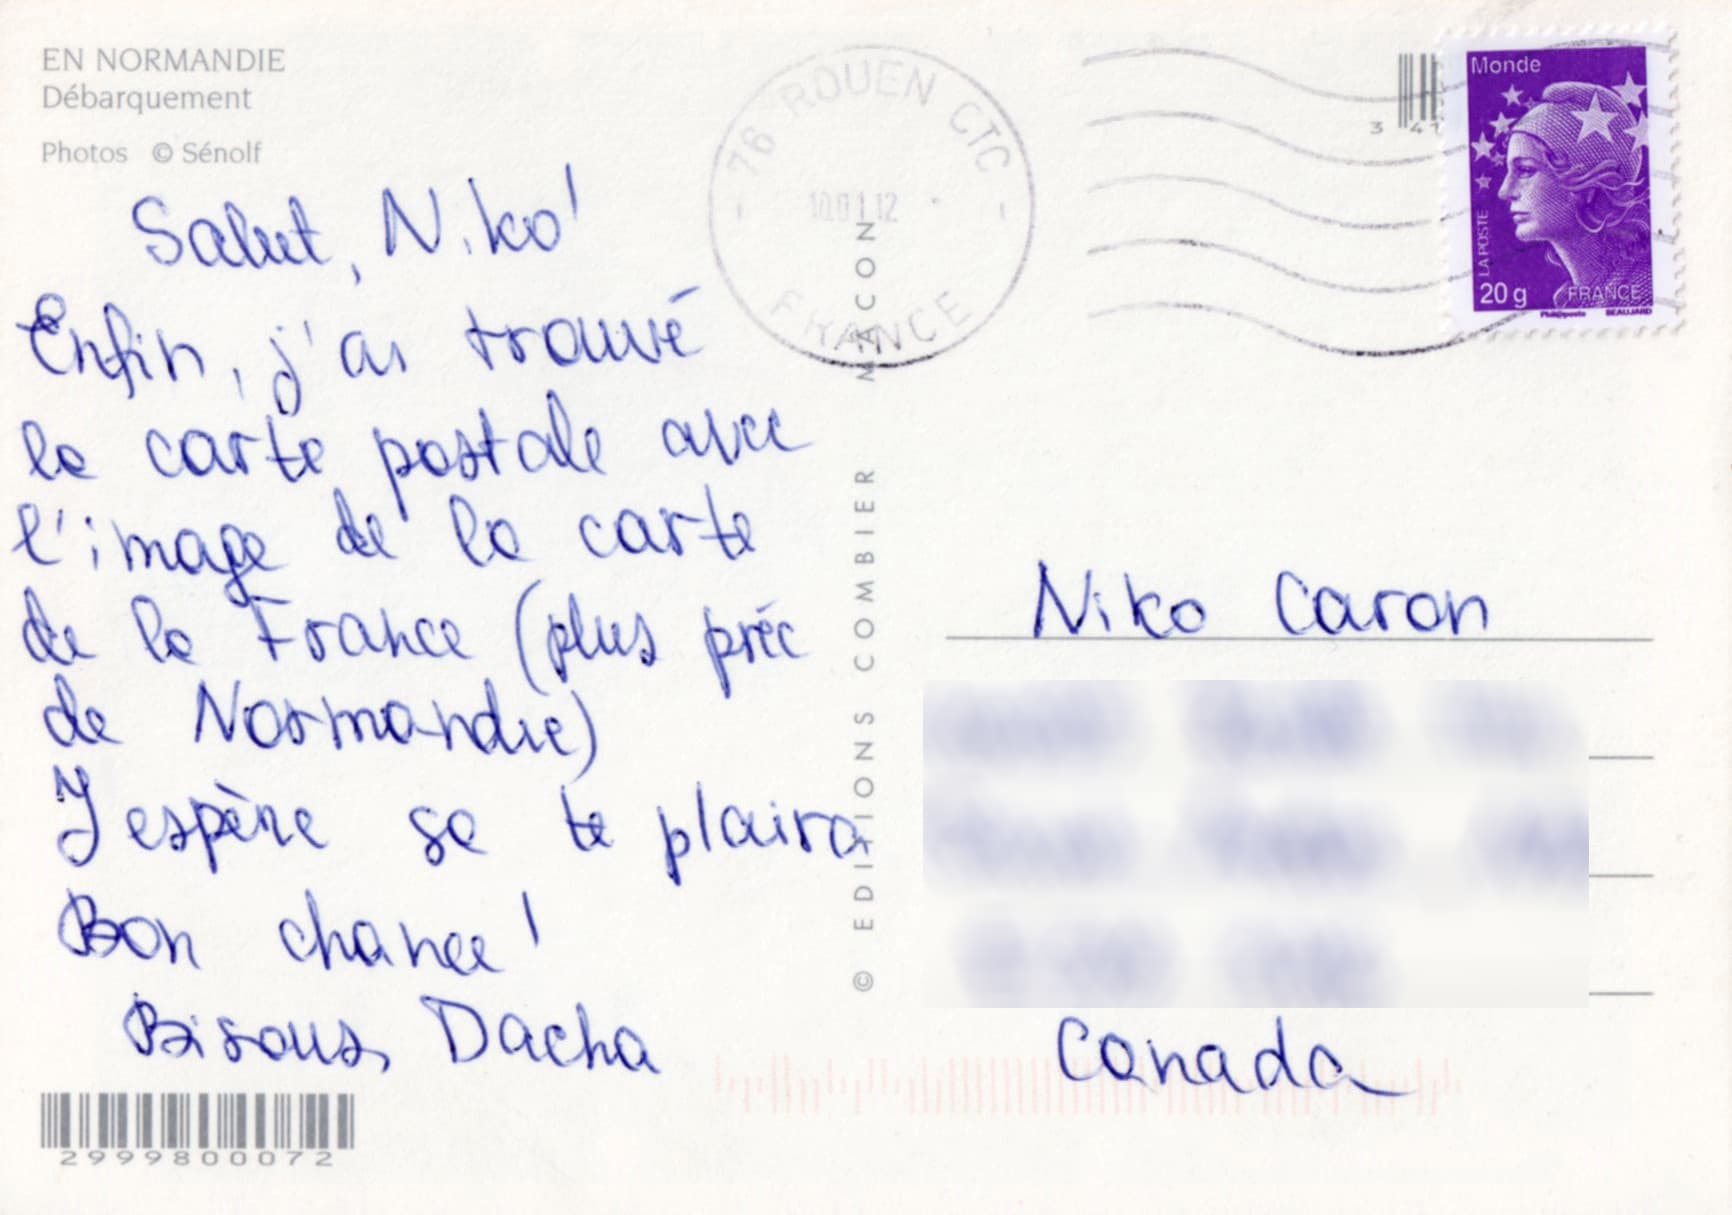 EN NORMANDIE
Débarquement
Photos © Sénolf
Salut, Niko!
Enfin, j'ai trouvé
la carte postale avec
l'image de la carte
de la France (plus préc
de Normandie)
J'espère sa te plaira
Bon chance!
Bisous, Dacha
2999800072
76 ROUEN CTC
10 01 12
FRANCE
© EDITIONS COMBIER MACON
3 41
Monde
LA POSTE
20 g FRANCE
Phil@poste BEAUJARD
Niko Caron
Canada